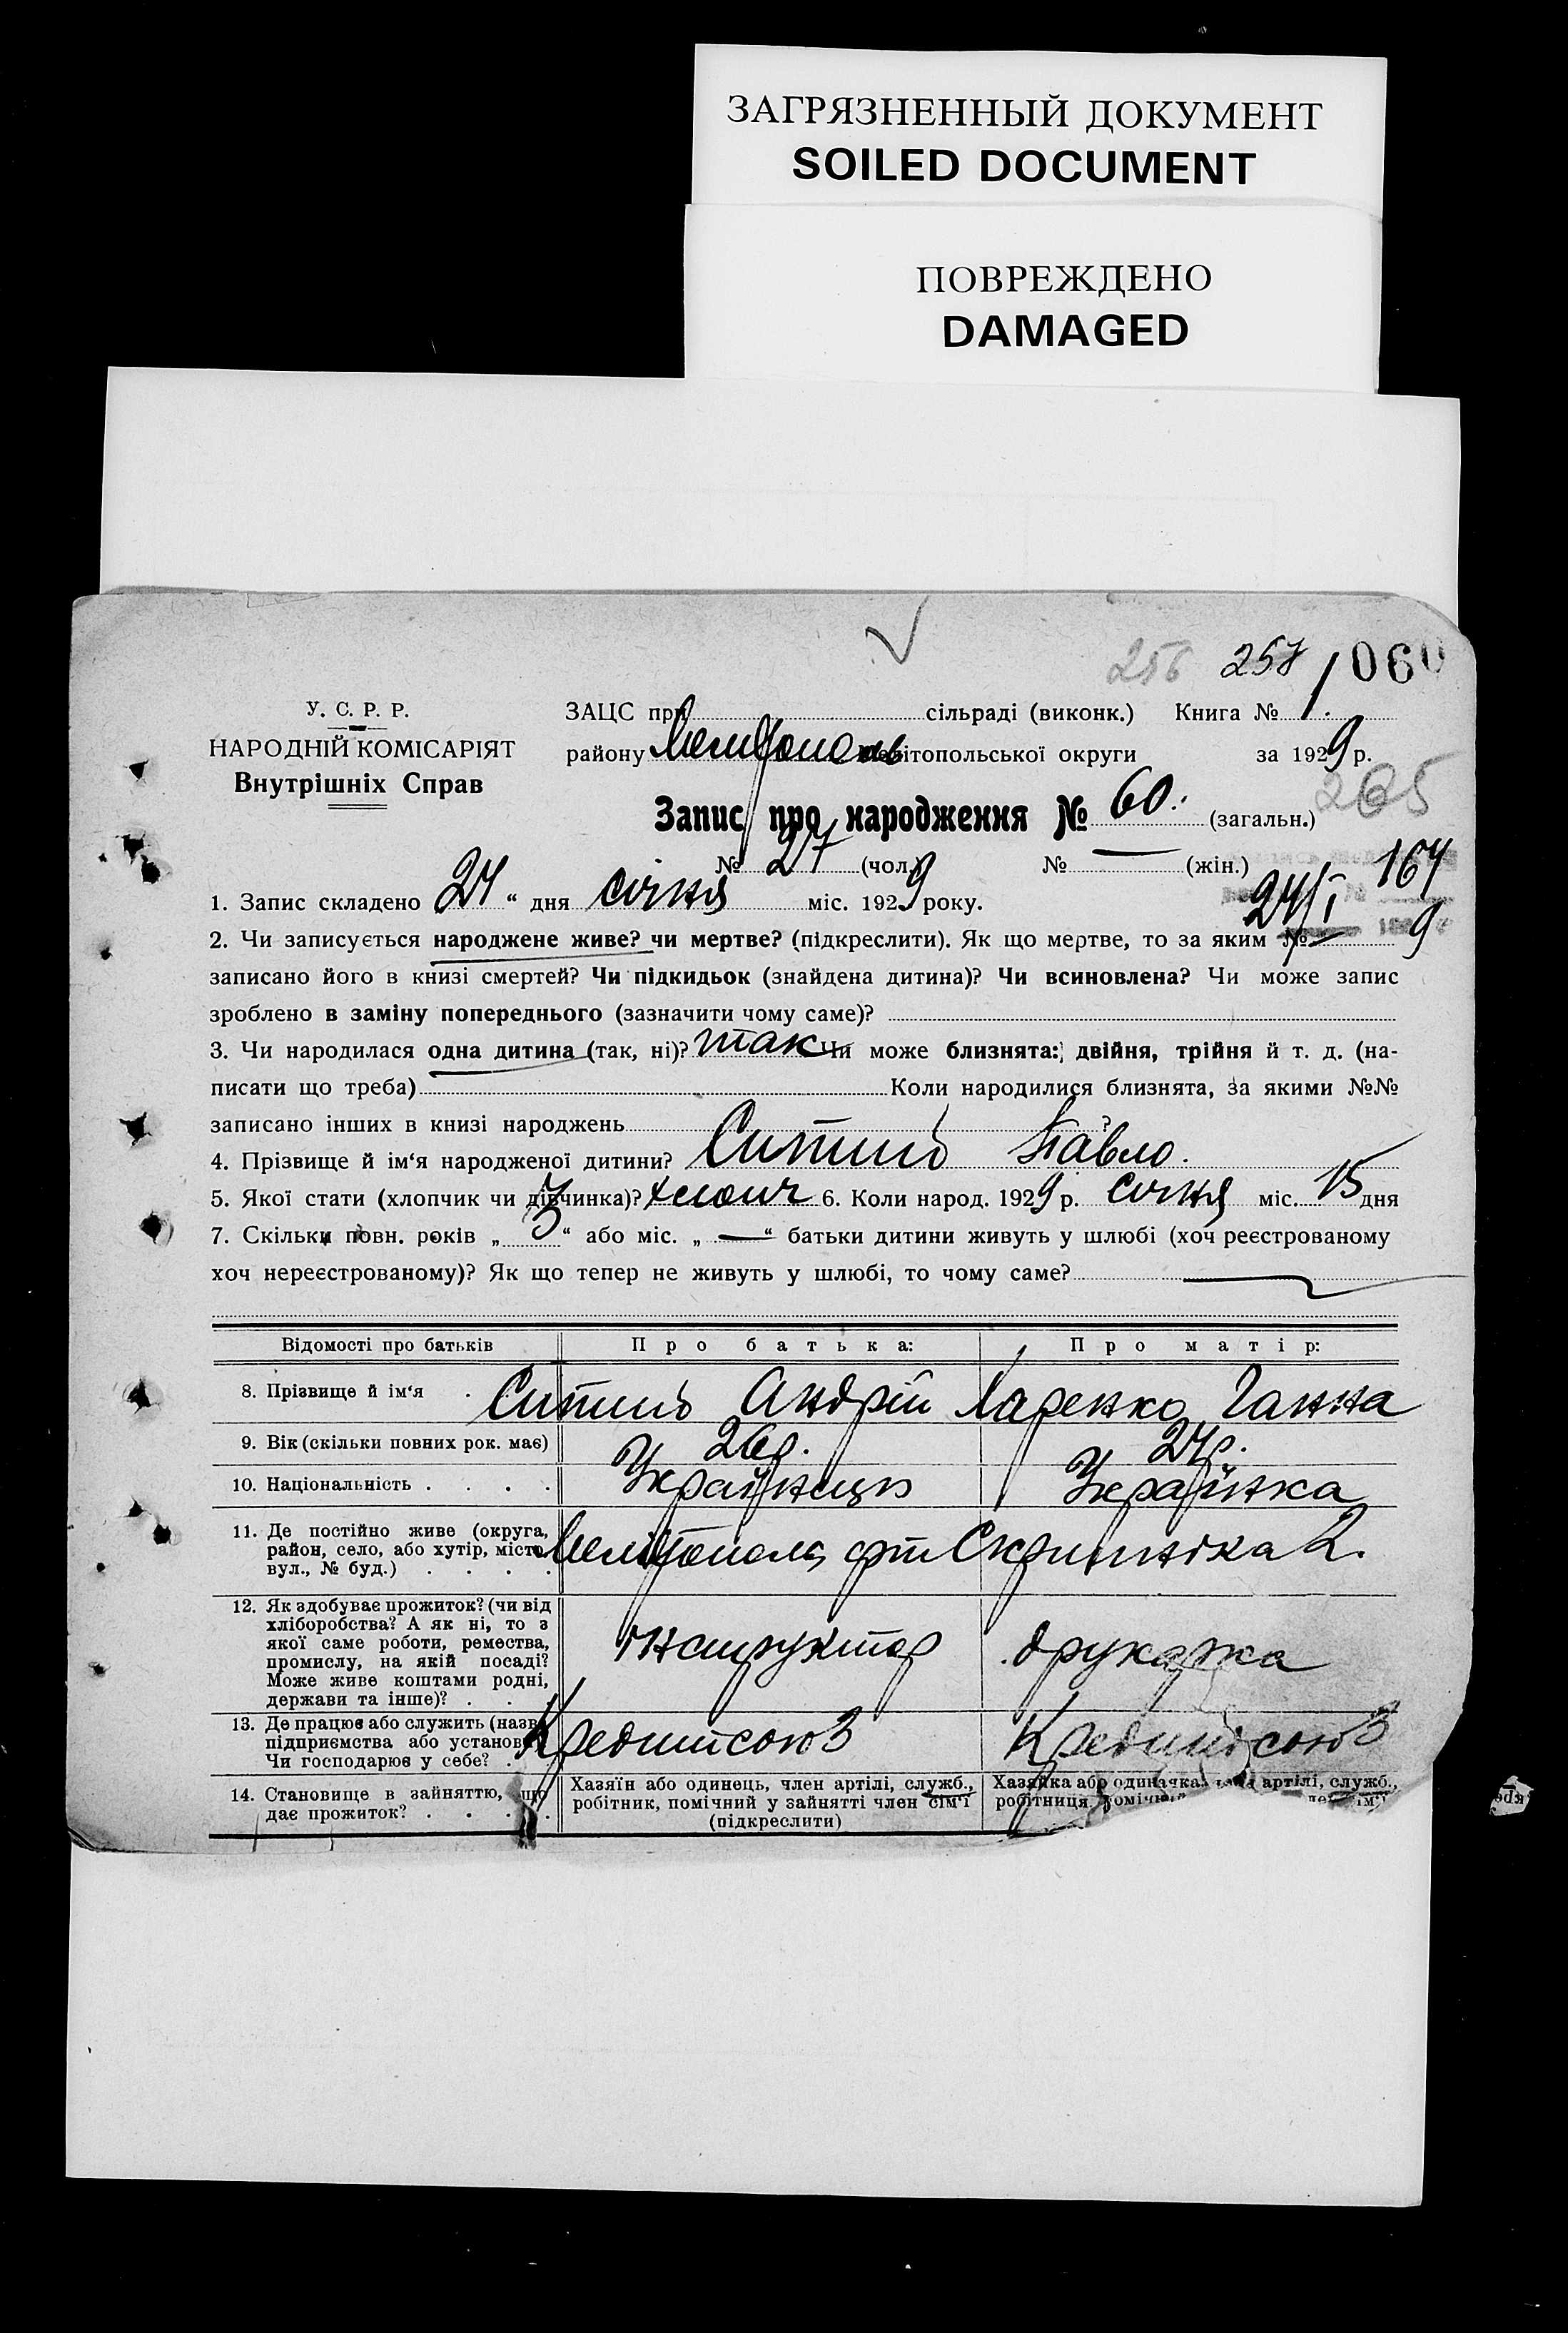 ЗАГРЯЗНЕННЫЙ ДОКУМЕНТ
SOILED DOCUMENT
ПОВРЕЖДЕНО
DAMAGED
256 257 1060
У. С. Р. Р.
НАРОДНІЙ КОМІСАРІЯТ
Внутрішніх Справ
ЗАЦС при сільраді (виконк.) Книга № 1.
району Мелітополь Мелітопольської округи за 1929 р.
265
Запис про народження № 60. (загальн.)
№ 27 (чол.) № — (жін.) 164
1. Запис складено 24 “ дня січня міс. 1929 року. 24/I 9
2. Чи записується народжене живе? чи мертве? (підкреслити). Як що мертве, то за яким №
записано його в книзі смертей? Чи підкидьок (знайдена дитина)? Чи всиновлена? Чи може запис
зроблено в заміну попереднього (зазначити чому саме)?
3. Чи народилася одна дитина (так, ні)? так Чи може близнята: двійня, трійня й т. д. (на-
писати що треба) Коли народилися близнята, за якими №№
записано інших в книзі народжень ?
4. Прізвище й ім‘я народженої дитини? Ситий Павло.
5. Якої стати (хлопчик чи дівчинка)? хлопч 6. Коли народ. 1929 р. січня міс. 15 дня
7. Скільки повн. років „ 3 “ або міс. „ — “ батьки дитини живуть у шлюбі (хоч реєстрованому
хоч нереєстрованому)? Як що тепер не живуть у шлюбі, то чому саме?
Відомості про батьків Про батька: Про матір:
8. Прізвище й ім‘я Ситий Андрій Харенко Ганна
9. Вік (скільки повних рок. має) 26р. 24р.
10. Національність Українець Українка
11. Де постійно живе (округа,
район, село, або хутір, місто
вул., № буд.) Мелітополь Скрипніка 2.
12. Як здобуває прожиток? (чи від
хліборобства? А як ні, то з
якої саме роботи, ремества,
промислу, на якій посаді?
Може живе коштами родні,
держави та інше)? Інструктор друкарка
13. Де працює або служить (назва
підприємства або установи
Чи господарює у себе? Кредитсоюз Кредитсоюз
14. Становище в зайняттю, що
дає прожиток?
Хазяїн або одинець, член артілі, служб.,
робітник, помічний у зайнятті член сім‘ї
(підкреслити)
Хазяйка або одиначка, артілі, служб.,
робітниця,